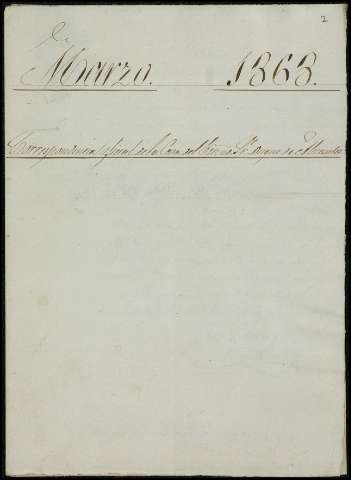 2
de
Marzo. 1868.
Correspondencia oficial de la Casa del Excmo Sr Duque de